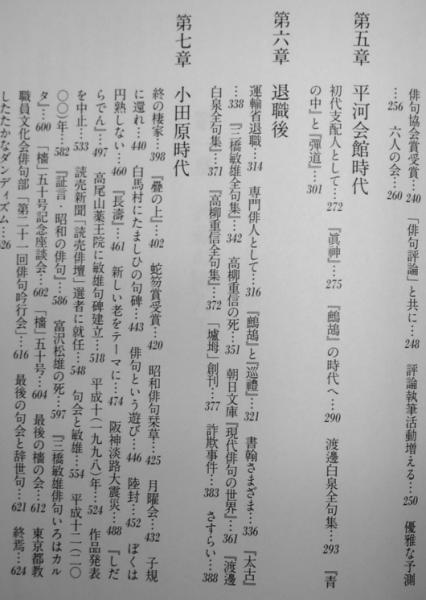 俳句協会賞受賞…240　「俳句評論」と共に…248　評論執筆活動増える…250　優雅な予測
…256　六人の会…260
第五章　平河会館時代
初代支配人として…272　『眞神』…275　『鷓鴣』の時代へ…290　渡邊白泉全句集…293　『青
の中』と『弾道』…301
第六章　退職後
運輸省退職…314　専門俳人として…316　『鷓鴣』と『巡禮』…321　書翰さまざま…336　『太古』
…338　『三橋敏雄全句集』…342　高柳重信の死…351　朝日文庫『現代俳句の世界』…361　『渡邊
白泉全句集』…371　『高柳重信全句集』…372　「壚坶」創刊…377　詐欺事件…383　さすらい…388
第七章　小田原時代
終の棲家…398　『疊の上』…402　蛇笏賞受賞…420　昭和俳句栞草…425　月曜会…432　子規
に還れ…440　白馬村にたましひの句碑…443　俳句という遊び…446　陸封…452　ぼくは
円熟しない…460　『長濤』…461　新しい老をテーマに…474　阪神淡路大震災…488　『しだ
らでん』…497　高尾山薬王院に敏雄句碑建立…518　平成十（一九九八）年…524　作品発表
を中止…533　読売新聞「読売俳壇」選者に就任…548　句会と敏雄…554　平成十二（二〇
〇〇）年…582　『証言・昭和の俳句』…586　富沢松雄の死…597　「三橋敏雄俳句いろはカル
タ』…600　「檣」五十号記念座談会…602　「檣」五十号…604　最後の檣の会…612　東京都教
職員文化会俳句部「第二十一回俳句吟行会」…616　最後の句会と辞世句…621　終焉…624
したたかなダンディズム…26